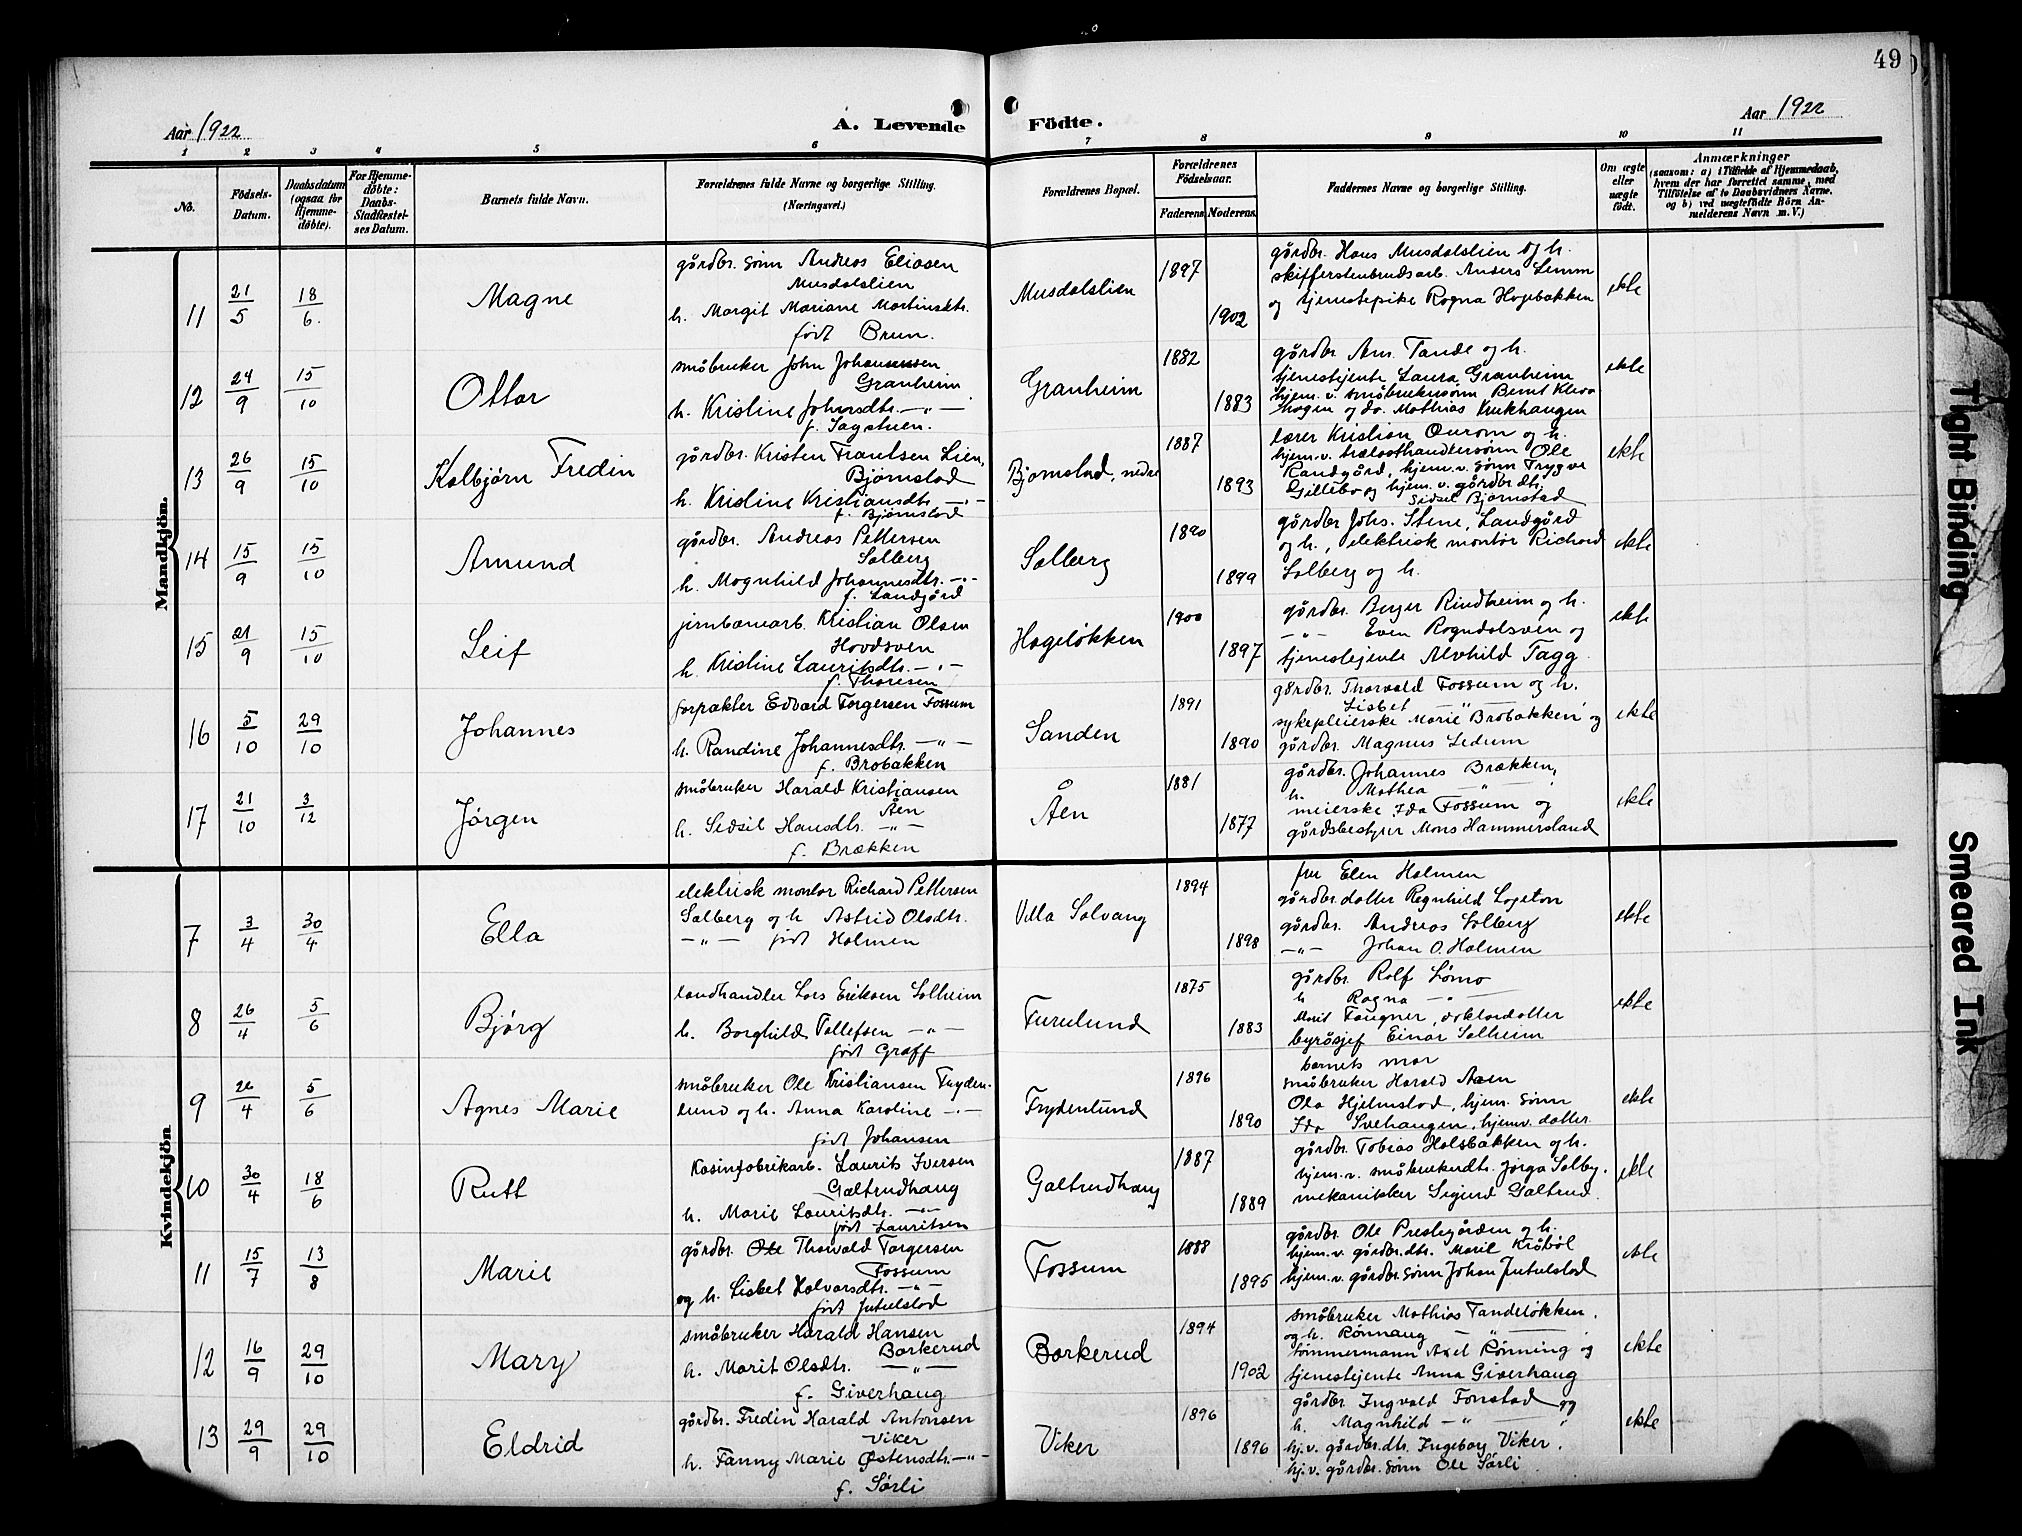 49
Aar 1922
A. Levende Födte.
Aar 1922
1 2 3 4 5 6 7 8 9 10 11
No.
Födsels-
Datum.
Daabsdatum
(ogsaa for
Hjemme-
döbte).
For Hjemme-
döbte:
Daabs-
Stadfæstel-
ses Datum.
Barnets fulde Navn.
Forældrenes fulde Navne og borgerlige Stilling.
(Næringsvei.)
Forældrenes Bopæl.
Forældrenes
Födselsaar.
Faderens. Moderens.
Faddernes Navne og borgerlige Stilling.
Om ægte
eller
uægte
født.
Anmærkninger
(saasom: a) i Tilfælde af Hjemmedaab,
hvem der har forrettet samme, med
Tilföielse af to Daabsvidners Navne.
og b) ved uægtefödte Börn An-
melderens Navn m. V.)
Mandkjön.
11 21/5 18/6 Magne
gårdbr. sønn Andreas Eliasen
Musdalslien
h. Margit Mariane Martinsdtr.
født Brun.
Musdalslien 1897 1902
gårdbr. Hans Musdalslien og h.
skifferstenbrudsarb. Anders Lemm
og tjenestepike Ragna Hagebakken
ekte
12 24/9 15/10 Ottar
småbruker John Johansen
Granheim
h. Kristine Johnsdtr. —"—
f. Sagstuen.
Granheim 1882 1883
gårdbr. Am. Tande og h.
tjenestejente Laura Granheim
hjem.v. småbrukersønn Bernt Kleva
hagen og do. Mathias Krukhaugen
ekte
13 26/9 15/10 Kolbjørn Fredin
gårdbr. Kristen Frantsen Lien,
Bjørnstad
h. Kristine Kristiansdtr. —"—
f. Bjørnstad
Bjørnstad, nedre 1887 1893
lærer Kristian Aurom og h.
hjem.v. trælasthandlersønn Ole
Randgård, hjem.v. sønn Trygve
Gillebo og hjem.v. gårdbr.dtr.
Sidsel Bjørnstad
ekte
14 15/9 15/10 Amund
gårdbr. Andreas Pettersen
Solberg
h. Magnhild Johannesdtr. —"—
f. Landgård
Solberg 1890 1899
gårdbr. Johs. Stene, Landgård
og h., elektrisk montør Richard
Solberg og h.
ekte
15 21/9 15/10 Leif
jernbanearb. Kristian Olsen
Hovdsven
h. Kristine Lauritsdtr. —"—
f. Thoresen
Hageløkken 1900 1897
gårdbr. Berger Rindheim og h.
—"— Even Rogndalsven og
tjenestejente Alvhild Tagg.
ekte
16 5/10 29/10 Johannes
forpakter Edvard Torgersen Fossum
h. Randine Johannesdtr. —"—
f. Brobakken
Sanden 1891 1890
gårdbr. Thorvald Fossum og h.
Lisbet —"—
sykepleierske Marie Brobakken og
gårdbr. Magnus Sedum
ekte
17 21/10 3/12 Jørgen
småbruker Harald Kristiansen
Åen
h. Sidsel Hansdtr. —"—
f. Brækken
Åen 1881 1877
gårdbr. Johannes Brækken,
h. Mathea —"—
meierske Ida Fossum og
gårdsbestyrer Mons Hammersland
ekte
Kvindekjön.
7 3/4 30/4 Ella
elektrisk montør Richard Pettersen
Solberg og h. Astrid Olsdtr.
—"— født Holmen
Villa Solvang 1894 1898
fru Elen Holmen
gårdbr.datter Regnhild Loseton
gårdbr. Andreas Solberg
—"— Johan O. Holmen
ekte
8 26/4 5/6 Bjørg
landhandler Lars Eriksen Solheim
h. Borghild Tollefsen —"—
født Graff
Furulund 1875 1883
gårdbr. Rolf Lømo
h. Ragna —"—
Marit Faugner, doktordatter
byråsjef Einar Solheim
barnets mor
ekte
9 26/4 5/6 Agnes Marie
småbruker Ole Kristiansen Fryden-
lund og h. Anna Karoline —"—
født Johansen
Frydenlund 1896 1890
småbruker Harald Aaen
Ola Hjelmstad, hjem. sønn
Ida Svehaugen, hjemv. datter
ekte
10 30/4 18/6 Rutt
Kasinfabrikarb. Laurits Iversen
Galtrudhaug
h. Marie Lauritsdtr. —"—
født Lauritsen
Galtrudhaug 1887 1889
gårdbr. Tobias Holsbakken og h.
hjem.v. småbrukerdtr. Jørga Solby.
mekanikker Sigurd Galtrud.
ekte
11 15/7 13/8 Marie
gårdbr. Ole Thorvald Torgersen
Fossum
og h. Lisbet Halvarsdtr. —"—
født Jutulstad
Fossum 1888 1895
gårdbr. Ole Prestegården og h.
hjem.v. gårdbr.dtr. Marie Kråbøl
hjem.v. gårdbr. sønn Johan Jutulstad
ekte
12 16/9 29/10 Mary
småbruker Harald Hansen
Borkerud
h. Marit Olsdtr. —"—
f. Giverhaug
Borkerud 1894 1902
småbruker Mathias Tandeløkken.
og h. Rønnaug —"—
tømmermann Axel Rønning og
tjenestejente Anna Giverhaug
ekte
13 29/9 29/10 Eldrid
gårdbr. Fredin Harald Antonsen
Viker
h. Fanny Marie Østensdtr. —"—
f. Sørli
Viker 1896 1896
gårdbr. Ingvald Fonstad og
h. Magnhild —"—
hj.v. gårdbr.dtr. Ingeborg Viker.
hj.v. gårdbr. sønn Ole Sørli
ekte
Tight Binding
Smeared Ink